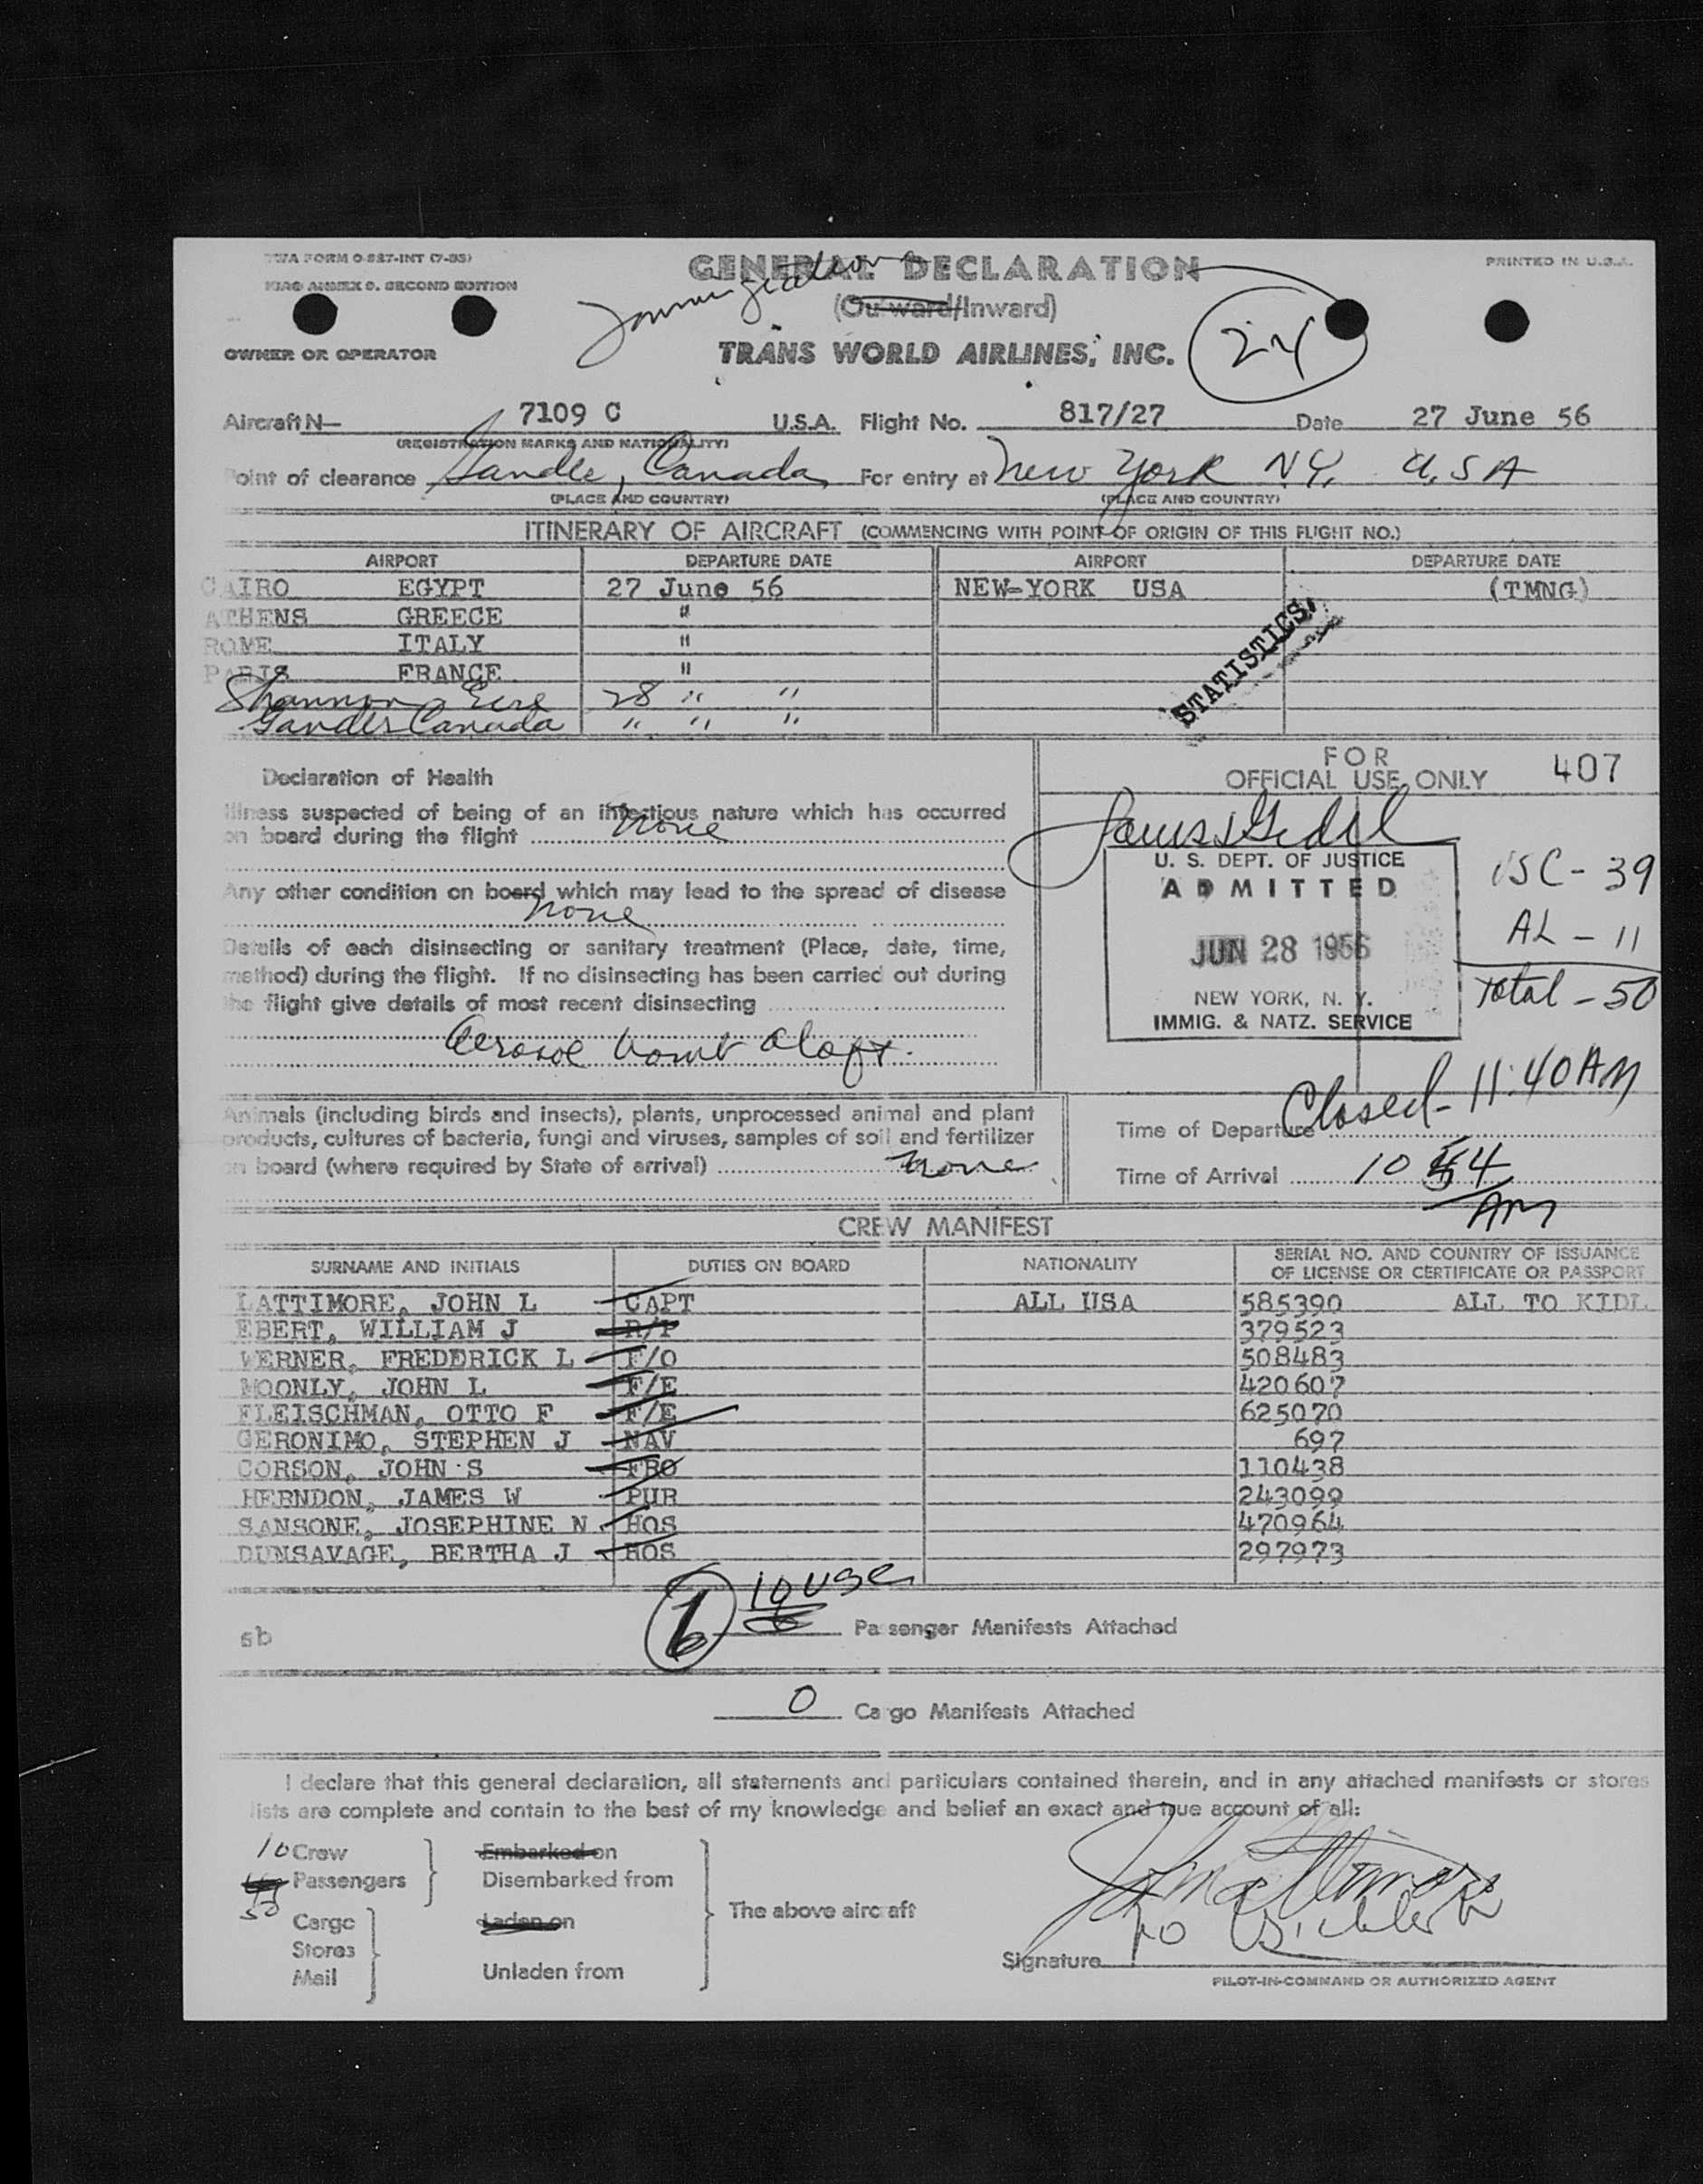 TWA FORM O-827-INT (7-53)
ICAO ANNEX 9, SECOND EDITION
PRINTED IN U.S.A.
GENERAL DECLARATION
(Outward/Inward)
24
OWNER OR OPERATOR
TRANS WORLD AIRLINES, INC.
Aircraft N— 7109 C U.S.A. Flight No. 817/27 Date 27 June 56
(REGISTRATION MARKS AND NATIONALITY)
Point of clearance Gander, Canada For entry at New York N.Y. U.S.A
(PLACE AND COUNTRY) (PLACE AND COUNTRY)
ITINERARY OF AIRCRAFT (COMMENCING WITH POINT OF ORIGIN OF THIS FLIGHT NO.)
AIRPORT DEPARTURE DATE AIRPORT DEPARTURE DATE
CAIRO EGYPT 27 June 56 NEW-YORK USA (TMNG)
ATHENS GREECE "
ROME ITALY "
PARIS FRANCE "
Shannon Eire 28 " "
Gander Canada " " "
STATISTICS
Declaration of Health
Illness suspected of being of an infectious nature which has occurred
on board during the flight none
Any other condition on board which may lead to the spread of disease
none
Details of each disinsecting or sanitary treatment (Place, date, time,
method) during the flight. If no disinsecting has been carried out during
the flight give details of most recent disinsecting
Aerosol bomb aloft.
FOR
OFFICIAL USE ONLY 407
U. S. DEPT. OF JUSTICE
ADMITTED
JUN 28 1956
NEW YORK, N. Y.
IMMIG. & NATZ. SERVICE
USC - 39
AL - 11
Total - 50
Closed - 11:40 AM
Animals (including birds and insects), plants, unprocessed animal and plant
products, cultures of bacteria, fungi and viruses, samples of soil and fertilizer
on board (where required by State of arrival) none
Time of Departure
Time of Arrival 10 54
AM
CREW MANIFEST
SURNAME AND INITIALS DUTIES ON BOARD NATIONALITY SERIAL NO. AND COUNTRY OF ISSUANCE
OF LICENSE OR CERTIFICATE OR PASSPORT
LATTIMORE, JOHN L CAPT ALL USA 585390 ALL TO KIDL
EBERT, WILLIAM J R/P 379523
WERNER, FREDERICK L F/O 508483
MOONLY, JOHN L F/E 420607
FLEISCHMAN, OTTO F F/E 625070
GERONIMO, STEPHEN J NAV 697
CORSON, JOHN S FRO 110438
HERNDON, JAMES W PUR 243099
SANSONE, JOSEPHINE N HOS 470964
DUNSAVAGE, BERTHA J HOS 297973
10 USC
6
sb
Passenger Manifests Attached
0 Cargo Manifests Attached
I declare that this general declaration, all statements and particulars contained therein, and in any attached manifests or stores
lists are complete and contain to the best of my knowledge and belief an exact and true account of all:
10 Crew Embarked on
Passengers Disembarked from
50
The above aircraft
Cargo Laden on
Stores
Mail Unladen from
Signature
PILOT-IN-COMMAND OR AUTHORIZED AGENT